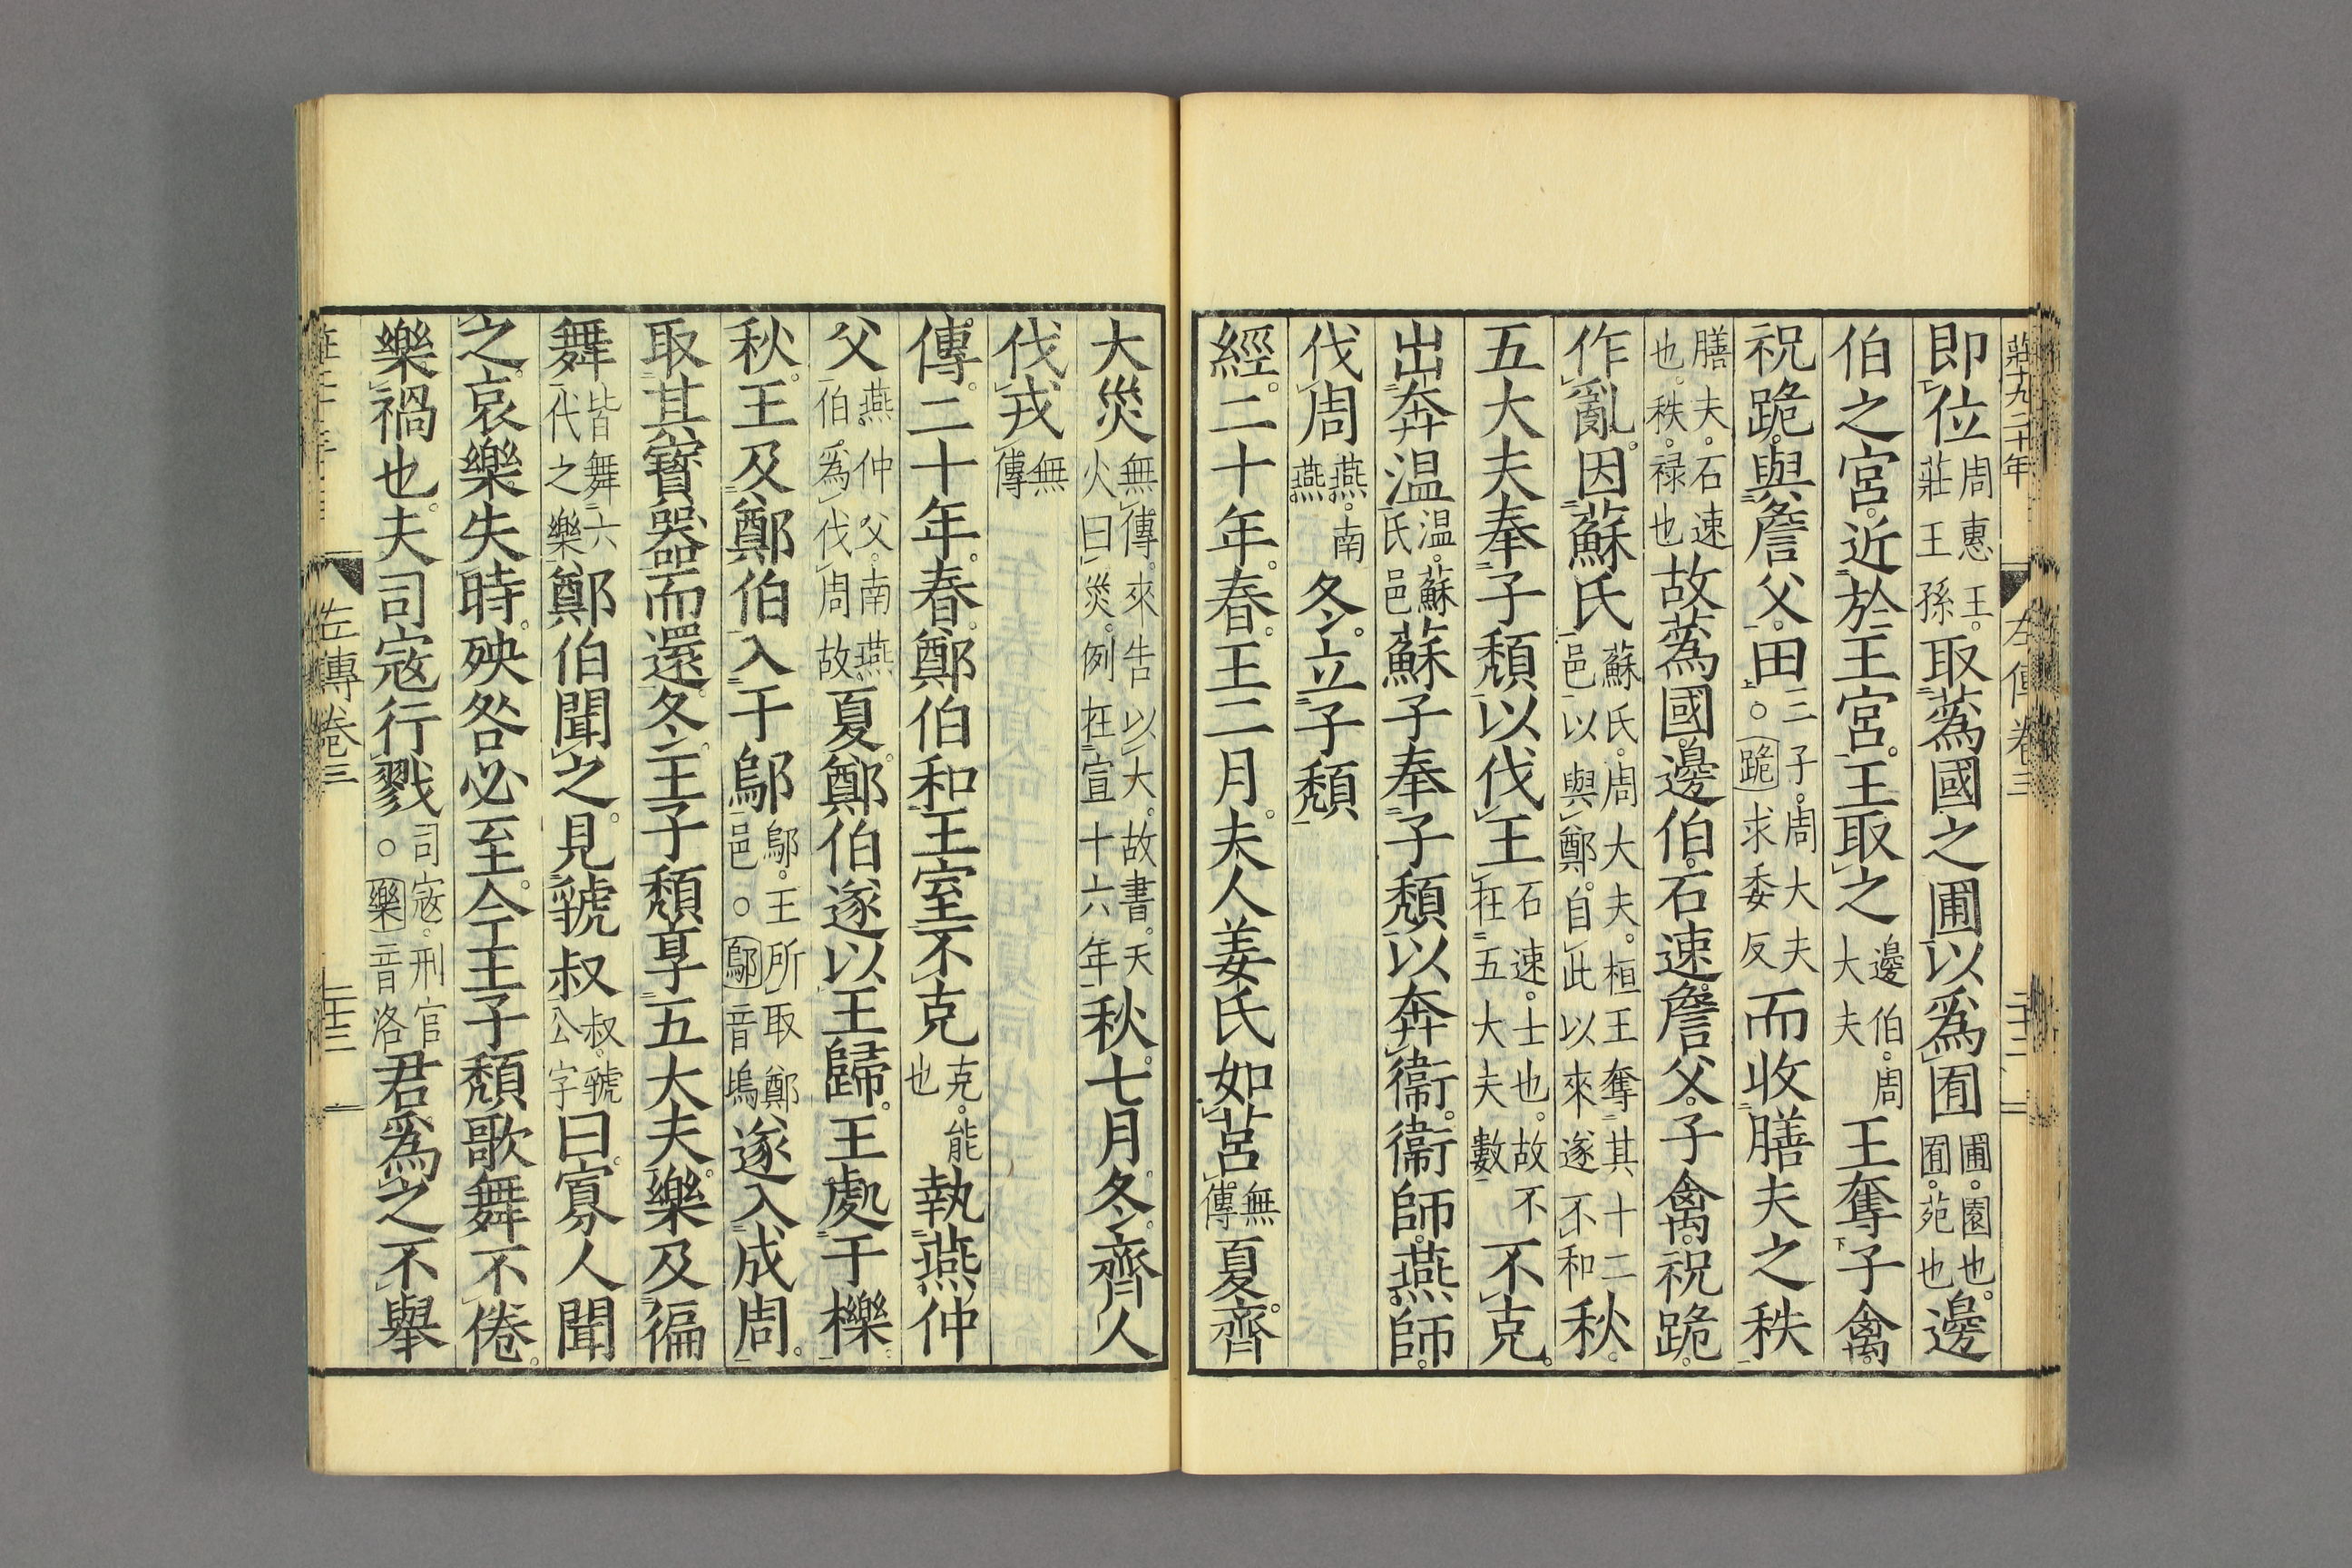 莊十九二十年 左傳卷三 二十二
即位周惠王莊王孫取蔿國之圃以爲囿圃園也囿苑也邊
伯之宮近於王宮王取之邊伯周大夫王奪子禽
祝跪與詹父田三子周大夫○跪求委反而收膳夫之秩
膳夫石速也秩禄也故蔿國邊伯石速詹父子禽祝跪
作亂因蘇氏蘇氏周大夫桓王奪其十二邑以與鄭自此以來遂不和秋
五大夫奉子頹以伐王石速士也故不在五大夫數不克
出奔温温蘇氏邑蘇子奉子頹以奔衞衞師燕師
伐周燕南燕冬立子頹
經二十年春王二月夫人姜氏如莒無傳夏齊
大災無傳來告以大故書天火曰災例在宣十六年秋七月冬齊人
伐戎無傳
傳二十年春鄭伯和王室不克克能也執燕仲
父燕仲父南燕伯爲伐周故夏鄭伯遂以王歸王處于櫟
秋王及鄭伯入于鄔鄔王所取鄭邑○鄔音塢遂入成周
取其寶器而還冬王子頹享五大夫樂及徧
舞皆舞六代之樂鄭伯聞之見虢叔叔虢公字曰寡人聞
之哀樂失時殃咎必至今王子頹歌舞不倦
樂禍也夫司寇行戮司寇刑官○樂音洛君爲之不舉
左傳卷三 二十三